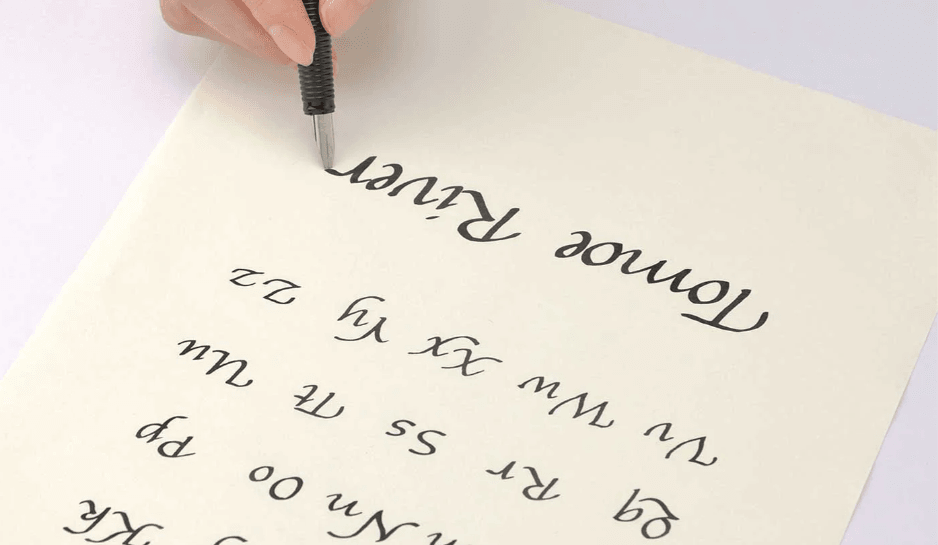 Kk
Nn Oo Pp
Qq Rr Ss Tt Uu
Vv Ww Xx Yy Zz
Tomoe River